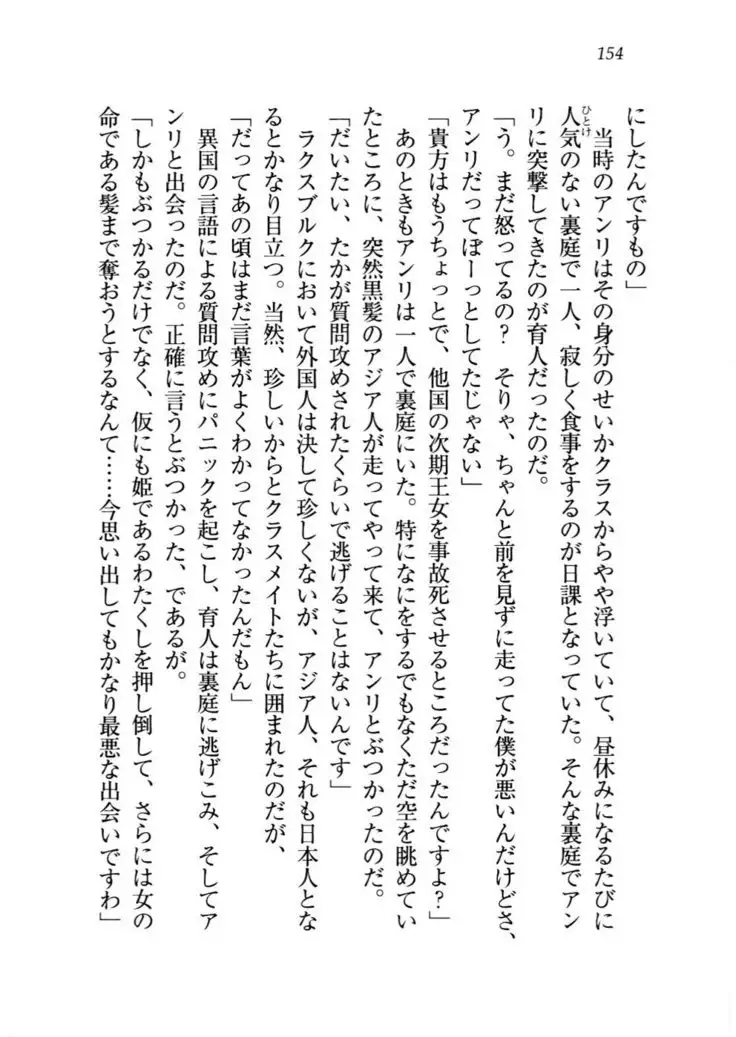 154
にしたんですもの」
当時のアンリはその身分のせいかクラスからやや浮いていて、昼休みになるたびに
人気のない裏庭で一人、寂しく食事をするのが日課となっていた。そんな裏庭でアン
ひとけ
リに突撃してきたのが育人だったのだ。
「う。まだ怒ってるの？　そりゃ、ちゃんと前を見ずに走ってた僕が悪いんだけどさ、
アンリだってぼーっとしてたじゃない」
「貴方はもうちょっとで、他国の次期王女を事故死させるところだったんですよ？」
あのときもアンリは一人で裏庭にいた。特になにをするでもなくただ空を眺めてい
たところに、突然黒髪のアジア人が走ってやって来て、アンリとぶつかったのだ。
「だいたい、たかが質問攻めされたくらいで逃げることはないんです」
ラクスブルクにおいて外国人は決して珍しくないが、アジア人、それも日本人とな
るとかなり目立つ。当然、珍しいからとクラスメイトたちに囲まれたのだが、
「だってあの頃はまだ言葉がよくわかってなかったんだもん」
異国の言語による質問攻めにパニックを起こし、育人は裏庭に逃げこみ、そしてア
ンリと出会ったのだ。正確に言うとぶつかった、であるが。
「しかもぶつかるだけでなく、仮にも姫であるわたくしを押し倒して、さらには女の
命である髪まで奪おうとするなんて……今思い出してもかなり最悪な出会いですわ」